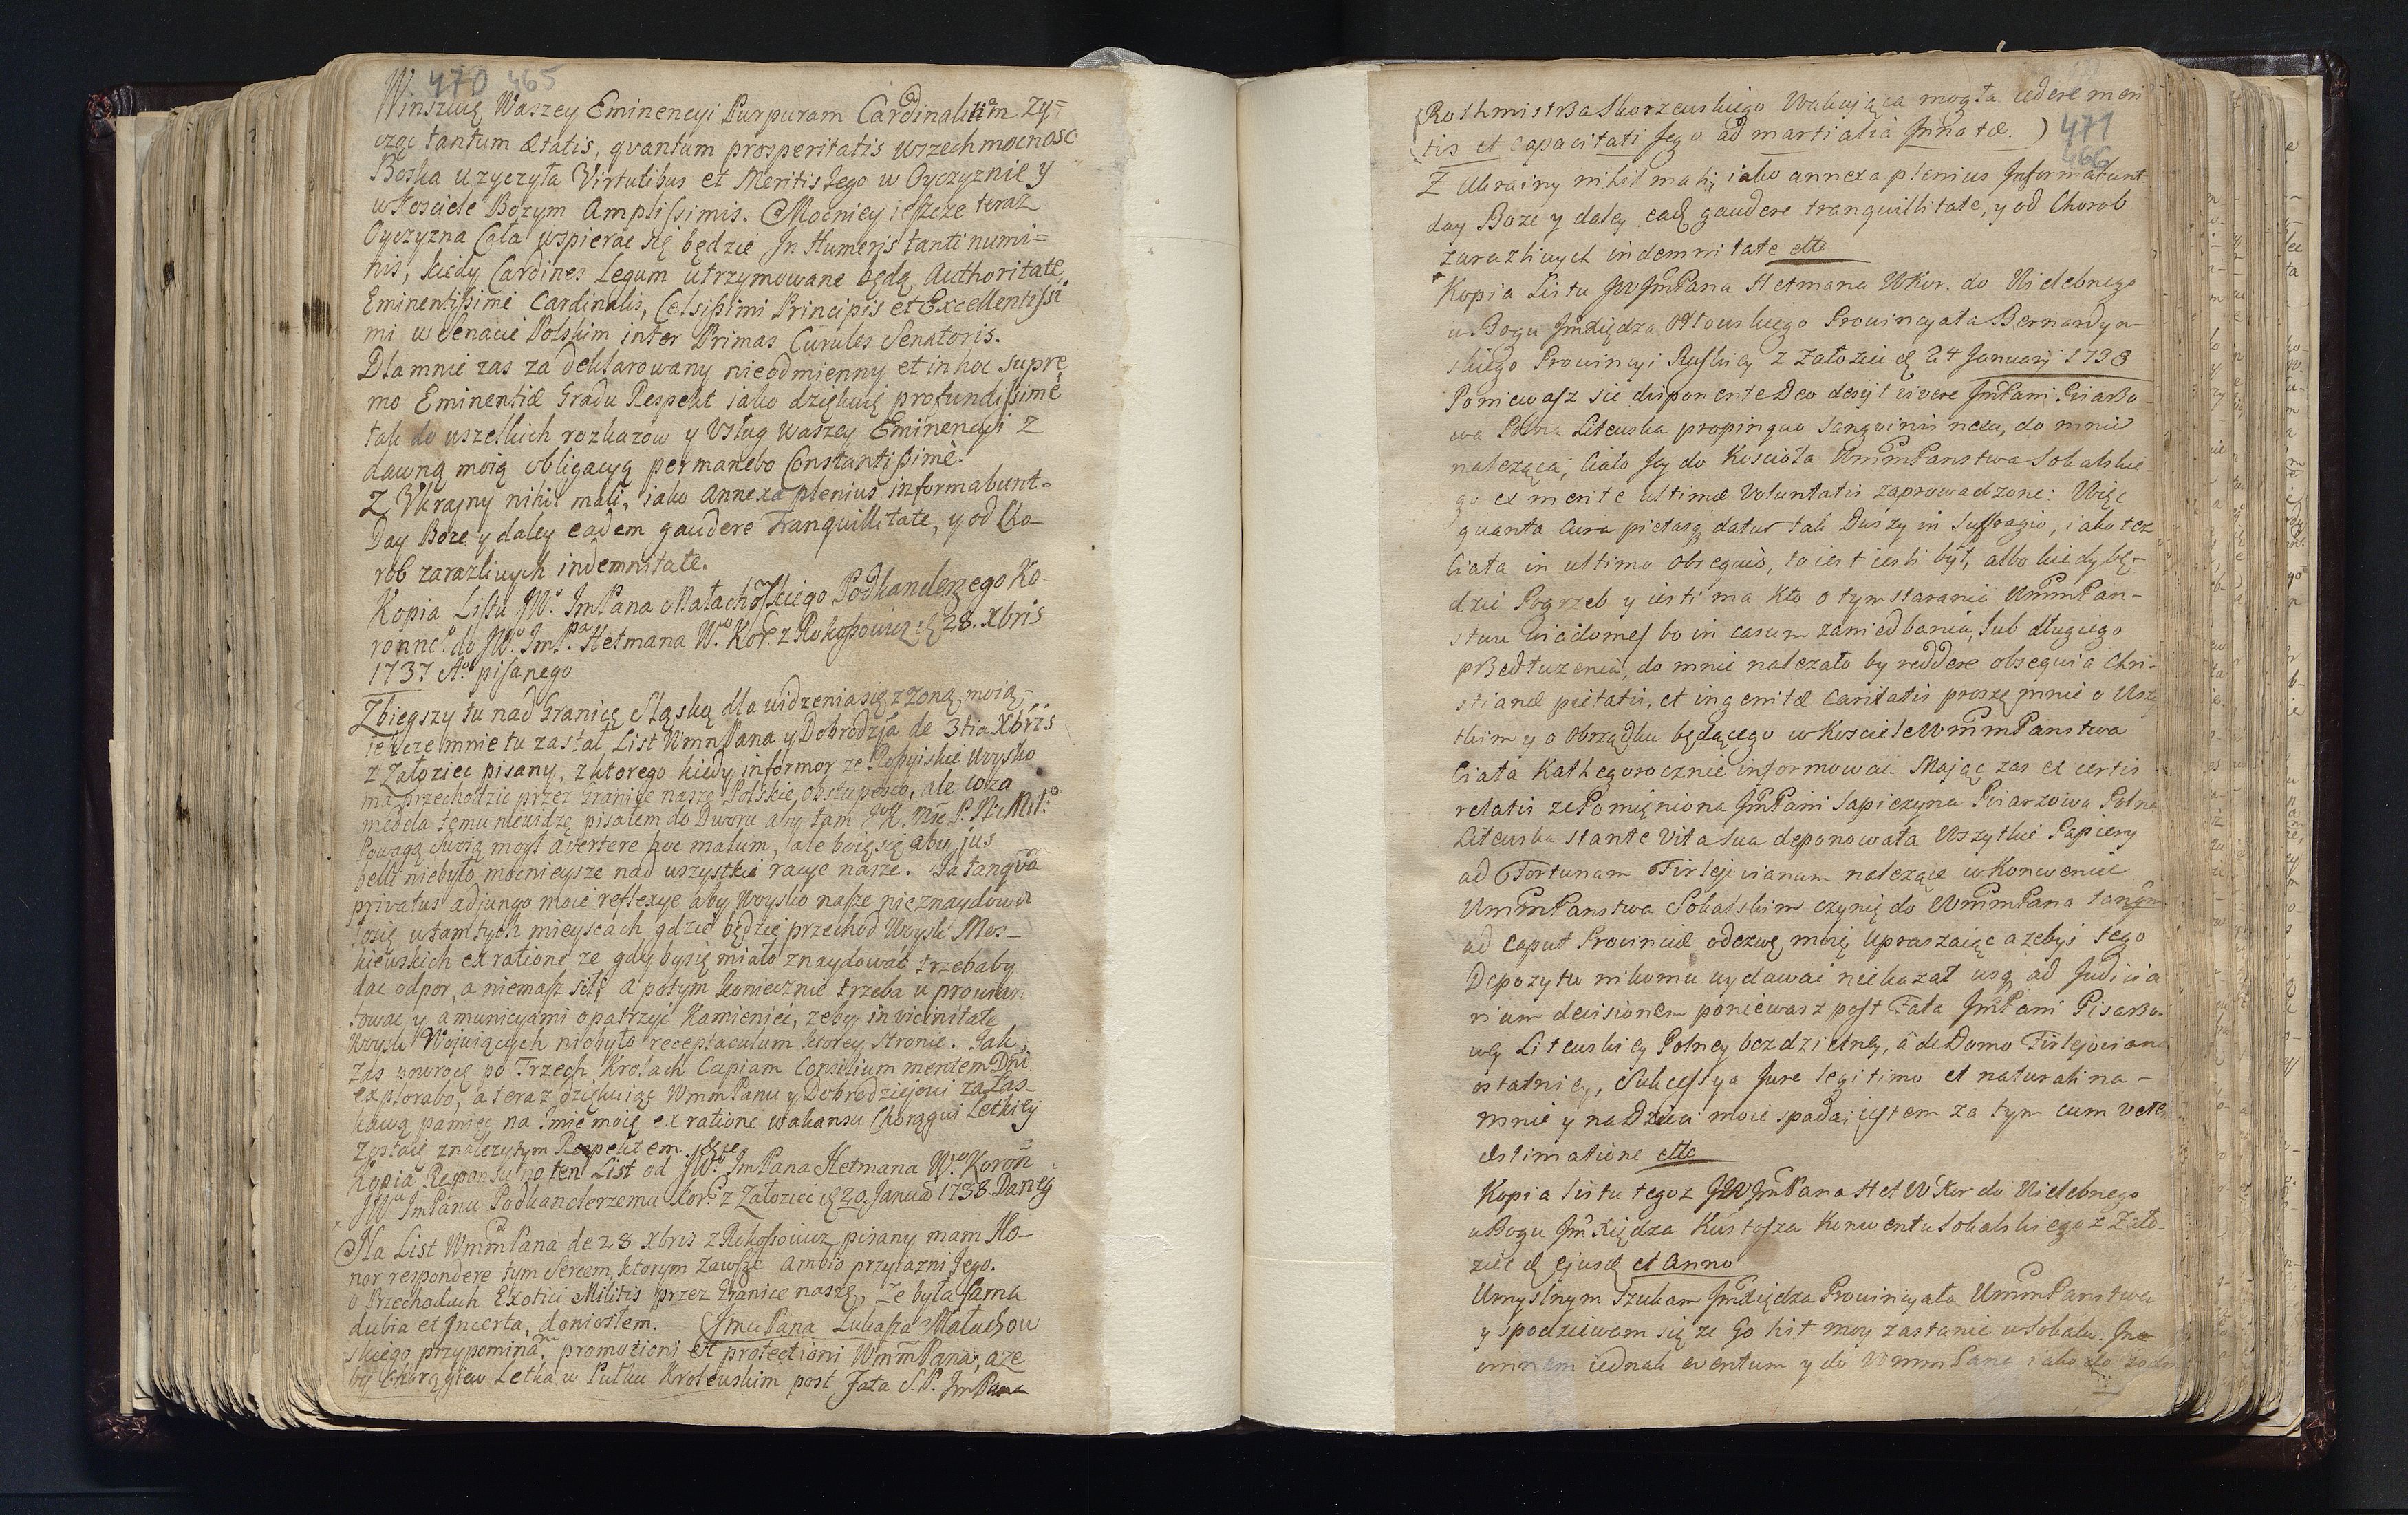 470 465
Winszuię Waszey Eminencyi Purpuram Cardinalitiam zy=
cząc tantum ætatis, qvantum prosperitatis wszechmocnosc
Boska uzyczyła Virtutibus et Meritis Iego w Oyczyznie y
w Kosciele Bozym Amplissimis. Mocniey ieszcze teraz
Oyczyzna Cała wspierac się będzie In Humeris tanti numi=
nis, kiedy Cardines Legum utrzymowane będą Authoritate
Eminentissimi Cardinalis, Celsissimi Principis et Excellentissi
mi w Senacie Polskim inter Primas Curules Senatoris.
Dla mnie zas za deklarowany nieodmienny et in hoc supre
mo Eminentiæ Gradu Respekt iako dziękuię profundissimè
tak do wszelkich rozkazow y Usług Waszey Eminencyi z
dawną moią obligacyą permanebo Constantissimè.
Z Vkrainy nihil mali, iako Annexa plenius informabunt.
Day Boze y daley eadem gaudere Tranquillitate, y od Cho-
rob zarazliwych indemnitate.
Kopia Listu JW.º ImPana Małachowskiego Podkanclerzego Ko-
ronneº. do JW.º Imp.ª Hetmana W.º Kor. z Rokossowicz 28. Xbris
1737 Aº pisanego
Zbiegszy tu nad Granicę Sląską dla widzenia się z zoną moią,
ieszcze mnie tu zastał List WmnPana y Dobrodzia de 3tia Xbris
z Załoziec pisany, z ktorego kiedy informor ze Rossyiskie woysko
ma przechodzic przez Granice nasze Polskie, obstupesco, ale coza
medela temu niewidzę pisałem do Dworu aby tam JK. Mć P. N. Mił.
Powagą Swoią mogł avertere hoc malum, ale boię się aby jus
belli niebyło mocnieysze nad wszystkie racye nasze. Ia tanqvã
privatus adjungo moie reflexye aby Woysko nasze nie znaydowa
ło się w tamtych mieyscach gdzie będzie przechod Woysk Mos-
kiewskich ex ratione ze gdyby się miało znaydować trzebaby
dac odpor, a niemasz sił; a potym koniecznie trzeba u prowian
towac y amunicyami opatrzyć Kamieniec, zeby in vicinitate
Woysk Woiuiących niebyło receptaculum ktorey stronie. Iak
zas powrocę po Trzech Krolach Capiam Consilium mentem Dñi
explorabo, a teraz dziękuiąc WmmPanu y Dobrodziejowi za łas-
kawą pamięć na Imie moie ex ratione wakansu Chorągwi Letkiey
Zostaię z nalezytym Respektem.
Kopia Responsu na ten List od JW.º ImPana Hetmana W.º Koron
JW.º ImPanu Podkanclerzemu Kor. z Załoziec 20. Januar 1738 Daney
Na List WmmPana de 28 Xbris z Rokossowicz pisany mam Ho-
nor respondere tym Sercem, ktorym zawsze ambio przyiazni Jego.
O Przechodach Exotici Militis przez Granice nasze, Ze była fama
dubia et Incerta, doniosłem. Imci Pana Łukasza Małachow
skiego przypominam promotioni et protectioni WmmPana, aze
by Chorągiew Letka w Pułku Krolewskim post Fata S.P. ImPana
471
466
Rothmistrza Skorzewskiego Wakuiąca mogła cedere meri
tis et capacitati Jego ad martialia Innatæ.)
Z Ukrainy nihil mali, iako annexa plenius Informabunt
day Boze y daley eadẽ gaudere tranquillitate, y od Chorob
zarazliwych indemnitate etto
Kopia Listu JWJmPana Hetmana WKor. do Wielebnego
w Bogu JmXiędza Ottowskiego Prowincyała Bernardyn-
skiego Prowincyi Ruskiey z Załoziec 24 January 1738
Poniewasz sie disponente Deo desyt vivere JmPani Pisarzo-
wa Polna Litewska propinquo Sangvinis nexu, do mnie
nalezącą, Ciało Jey do Kościoła WmmPanstwa Sokalskie-
go ex mente ultimæ Voluntatis zaprowadzone: Więc
quanta Cura pietasq datur tak Duszy in Suffragio, iako tez
Ciała in ultimo obsequio, to iest iesli był, albo kiedy bę-
dzie Pogrzeb y iesti ma kto o tym staranie WmmPan-
stwu wiadomo, bo in casum zaniedbania, Sub długiego
przedłuzenia, do mnie nalezało by reddere obsequia Chri-
stianæ pietatis, et ingenitæ Caritatis proszę mnie o Wszy
tkim y o obrządku będącego w Kosciele WmmPanstwa
Ciała Kathegorocznie informowac. Mając zas ex certis
relatis ze Pomięniona JmPani Sapiezyna Pisarzowa Polna
Litewska stante vita Sua deponowała Wszytkie Papiery
ad Fortunam Firlejovianam nalezące w Konwencie
WmmPanstwa Sokalskim czynię do WmmPana tanqm
ad caput Provinciæ odezwę moię upraszaiąc azebyś tego
Depozytu nikomu wydawac niekazał usq ad Judicia
rium decisionem poniewasz post Fata JmPani Pisarzo-
wey Litewskiey Polney bezdzietney, a de Domo Firlejoviana
ostatniey, Sukcessya Jure legitimo et naturali na-
mnie y na Dzieci moie spada; iestem za tym cum vete
æstimatione etto
Kopia listu tegoz JWJmPana Het WKor do Wielebnego
w Bogu JmXiędza Kustosza Konwentu Sokalskiego z Zało-
ziec ejusd et Anno
Umyslnym Szukam JmXiędza Prowincyała WmmPanstwa
y spodziewam się ze Go list moy zastanie w Sokalu. In
omnem iednak eventum y do WmmPana iako do